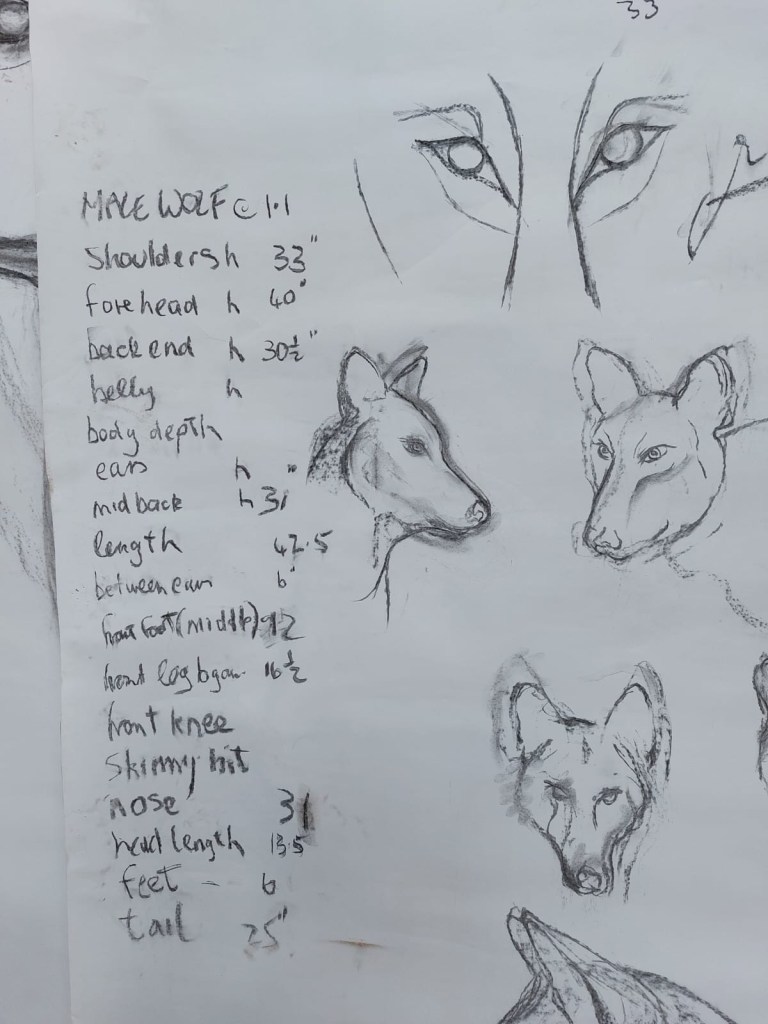 33
MALE WOLF @ 1.1
Shoulders h 33"
forehead h 40"
back end h 30½"
belly h
body depth
ears h "
mid back h 31
length 42.5
between ears 6"
front foot (middle) 12
front leg 16½
front knee
Skinny bit
nose 31
head length 13.5
feet – 6
tail 25"